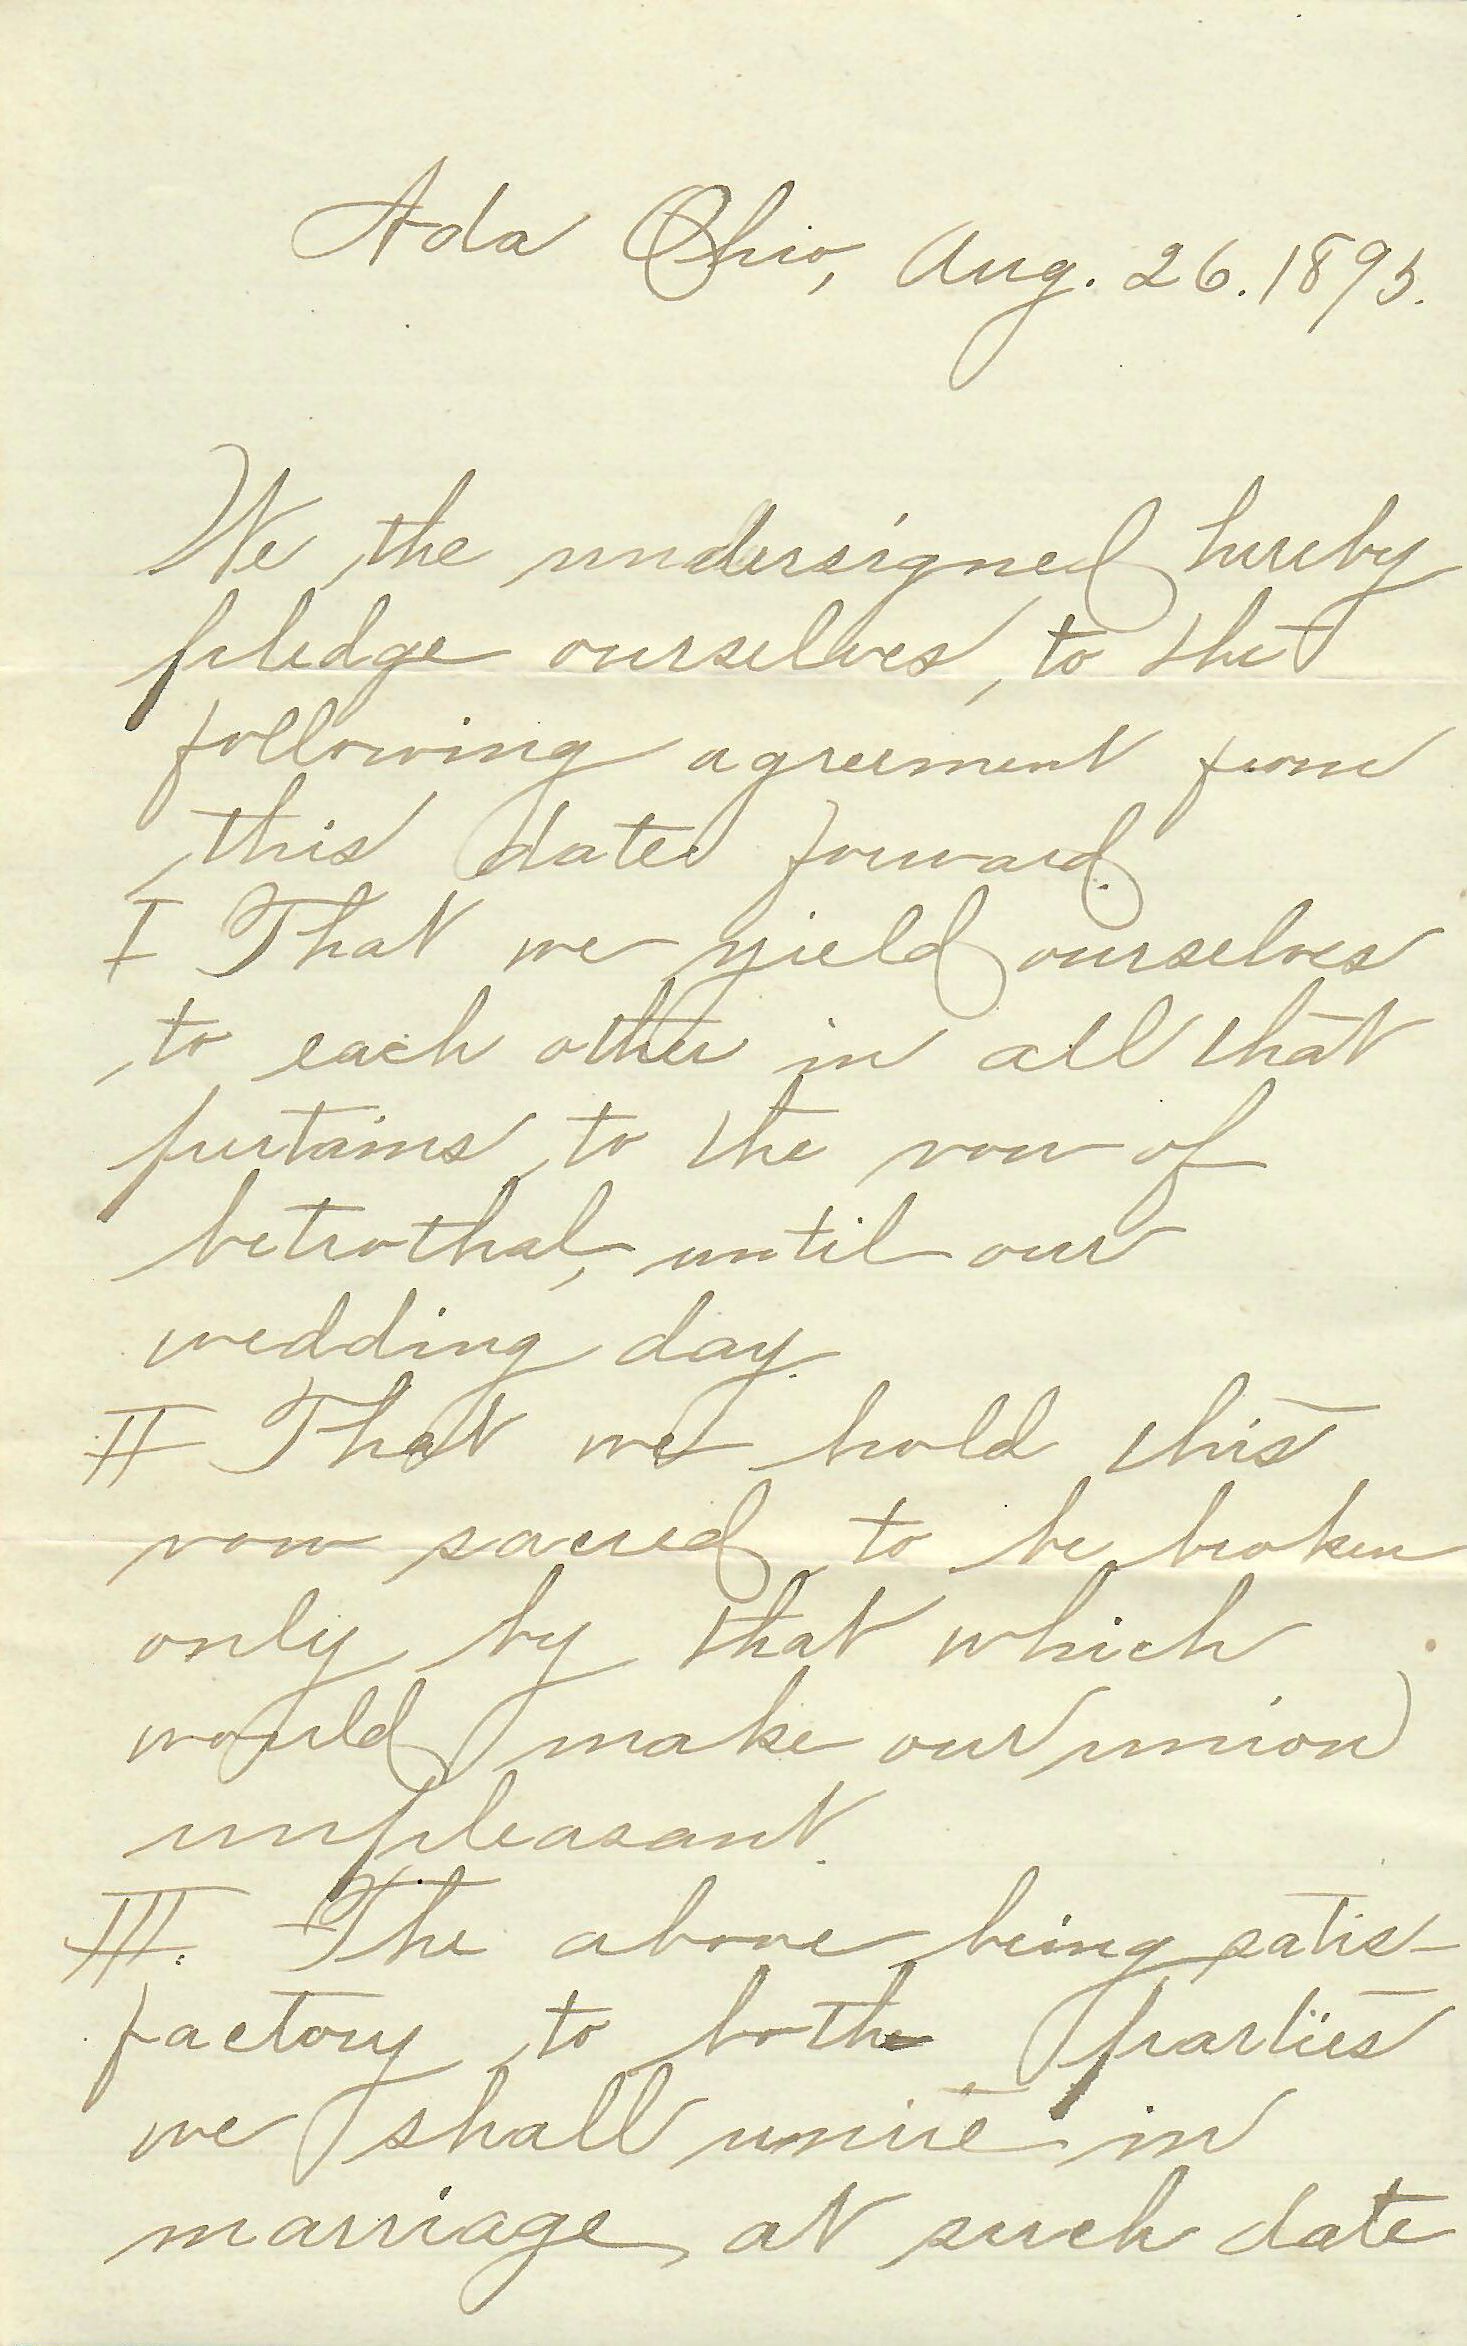 Ada Ohio, Aug. 26. 1895.
We the undersigned hereby
pledge ourselves, to the
following agreement from
this date forward.
I That we yield ourselves
to each other in all that
pertains to the vow of
betrothal, until our
wedding day.
II That we hold this
vow sacred to be broken
only by that which
would make our union
unpleasant.
III. The above being satis-
factory to both parties
we shall unite in
marriage, at such date